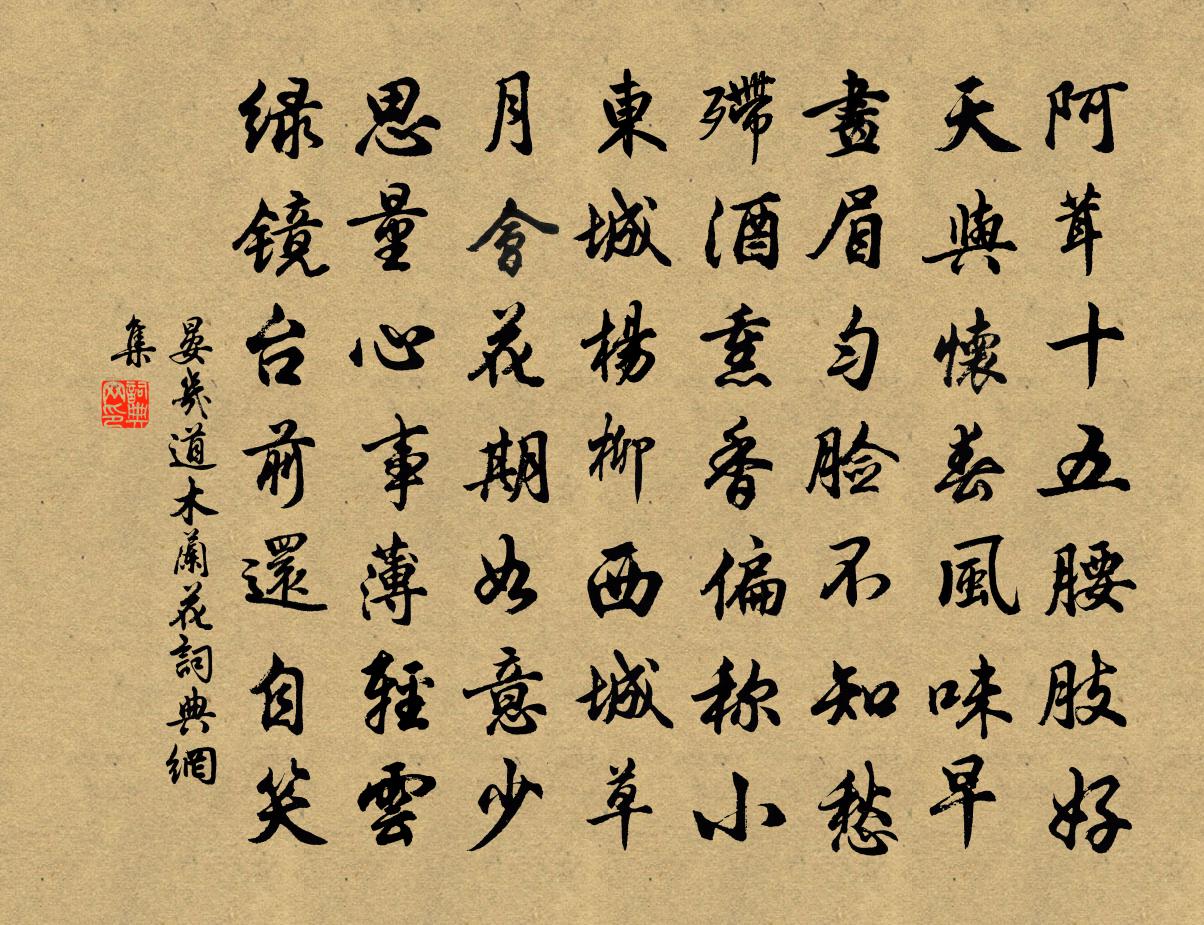 阿茸十五腰肢好
天與懷春風味早
畫眉勻臉不知愁
殢酒熏香偏称小
東城楊柳西城草
月會花期如意少
思量心事薄輕雲
绿镜台前還自笑
晏幾道木蘭花詞典網
集
詞典網印